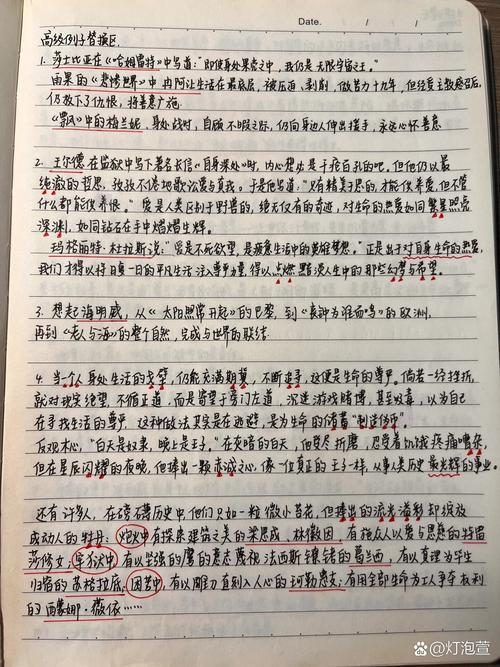 Date. / /
高级例子替换区
1. 莎士比亚在《哈姆雷特》中写道:"即使身处果壳之中,我仍是无限宇宙之王。"
雨果的《悲惨世界》中冉阿让生活在最底层,被压迫、剥削,做苦力十九年,但经主教感召后,
仍放下了仇恨,将善意广施
《飘》中的梅兰妮、身处战时,自顾不暇之际,仍向身边人伸出援手,永远心怀善意
2. 王尔德在监狱中写下著名长信《自深深处》时,内心想必是千疮百孔的吧。但他仍以最
纯澈的哲思,孜孜不倦地歌讼爱与真我。于是他写道:"只有精美于思的,才能仅来爱,但不管
什么都能供养恨。"爱是人类区别于野兽的,绝无仅有的奇迹,对生命的热爱如同繁星照亮
深渊,如同钻石在手中熠熠生辉。
玛格丽特·杜拉斯说:"爱是不死欲望,是疲惫生活中的英雄梦想。"正是出于对自身生命的热爱,
我们才得以将日复一日的平凡生活注入尊严力量,得以点燃黯淡人生中的那些幻梦与希望。
3. 想起海明威,从《太阳照常升起》的巴黎,到《丧钟为谁而鸣》的欧洲,
再到《老人与海》的整个自然,完成与世界的联结
4. 当一个人身处生活的戈壁,仍能充满期冀,不断追寻,这便是生命的尊严。倘若一经挫折,
就对现实绝望,不循正道,而是寄望于旁门左道,沉迷游戏赌博,甚至吸毒,以为自己
在寻找生活的尊严,这种做法其实是在逃避,是为生命的清醒"制造伤痕"。
反观木心,"白天是奴隶,晚上是王子。"在灾暗的白天,他受尽折磨,忍受着饥饿疼痛嘈杂,
但在星辰闪耀的夜晚,他捧出一颗赤诚之心,像一位真正的王子一样,从事人类历史最光辉的事业。
还有许多人,在磅礴历史中他们只如一粒微小苔花,但捧出的流光溢彩却绽放
成动人的牡丹:炮火中有探求建筑之美的梁思成、林徽因,有拯救人以爱与恩慈的特雷
莎修女;牢狱中有以坚强的鹰的意志蔑视法西斯镣铐的葛兰西,有以真理为毕生
归宿的苏格拉底;困苦中,有以雕刀直刻入人心的珂勒惠支;有用全部生命为工人争取权利
的西蒙娜·薇依……
百家号/灯泡萱